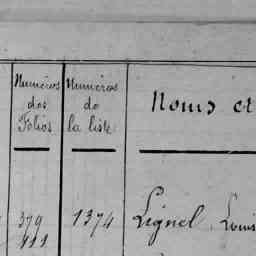 Numéros des Folios
Numéros de la liste
Noms et
379
1374
Lignel, Louis